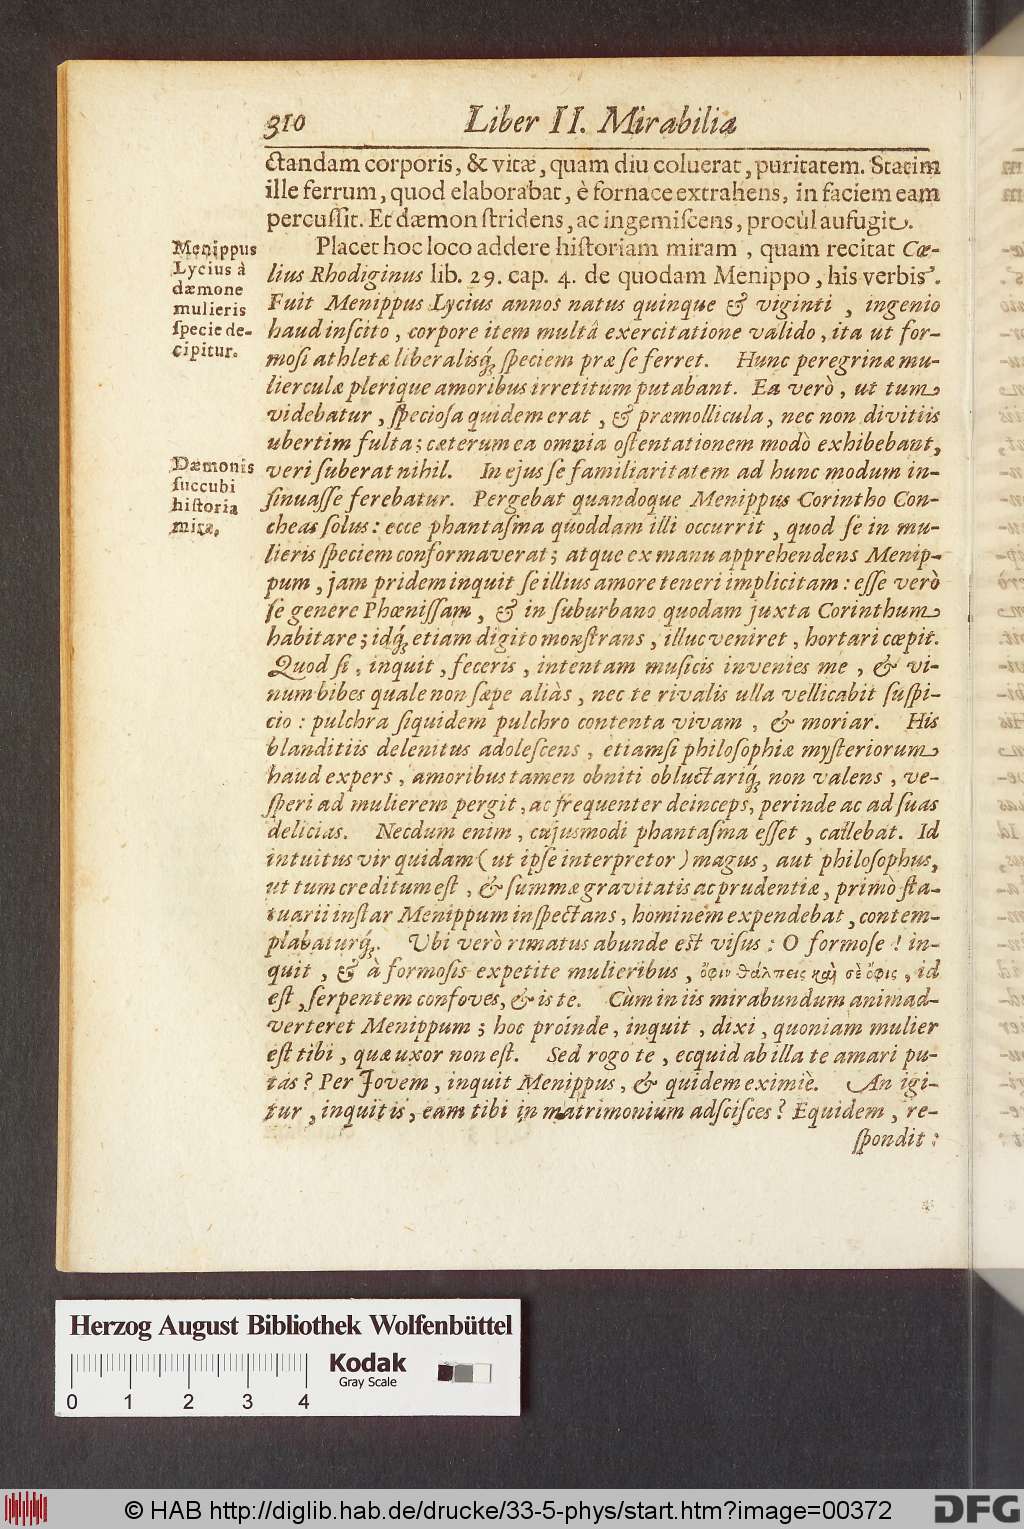 310 Liber II. Mirabilia
ctandam corporis, & vitæ, quam diu coluerat, puritatem. Statim
ille ferrum, quod elaborabat, è fornace extrahens, in faciem eam
percuſſit. Et dæmon ſtridens, ac ingemiſcens, procùl aufugit.
Placet hoc loco addere hiſtoriam miram, quam recitat Cæ-
lius Rhodiginus lib. 29. cap. 4. de quodam Menippo, his verbis.
Fuit Menippus Lycius annos natus quinque & viginti, ingenio
haud inſcito, corpore item multâ exercitatione valido, ita ut for-
moſi athletæ liberalisq́; ſpeciem præ ſe ferret. Hunc peregrinæ mu-
lierculæ plerique amoribus irretitum putabant. Ea verò, ut tum
videbatur, ſpecioſa quidem erat, & præmollicula, nec non divitiis
ubertim fulta; cæterum ea omnia oſtentationem modò exhibebant,
veri ſuberat nihil. In ejus ſe familiaritatem ad hunc modum in-
ſinuaſſe ferebatur. Pergebat quandoque Menippus Corintho Con-
cheas ſolus: ecce phantaſma quoddam illi occurrit, quod ſe in mu-
lieris ſpeciem conformaverat; atque ex manu apprehendens Menip-
pum, jam pridem inquit ſe illius amore teneri implicitam: eſſe verò
ſe genere Phœniſſam, & in ſuburbano quodam juxta Corinthum
habitare; idq́; etiam digito monſtrans, illuc veniret, hortari cœpit.
Quod ſi, inquit, feceris, intentam muſicis invenies me, & vi-
num bibes quale non ſæpe aliàs, nec te rivalis ulla vellicabit ſuſpi-
cio: pulchra ſiquidem pulchro contenta vivam, & moriar. His
blanditiis delenitus adoleſcens, etiamſi philoſophiæ myſteriorum
haud expers, amoribus tamen obniti obluctariq́; non valens, ve-
ſperi ad mulierem pergit, ac frequenter deinceps, perinde ac ad ſuas
delicias. Necdum enim, cujusmodi phantaſma eſſet, callebat. Id
intuitus vir quidam (ut ipſe interpretor) magus, aut philoſophus,
ut tum creditum eſt, & ſummæ gravitatis ac prudentiæ, primò ſta-
tuarii inſtar Menippum inſpectans, hominem expendebat, contem-
plabaturq́;. Ubi verò rimatus abunde eſt viſus: O formoſe! in-
quit, & à formoſis expetite mulieribus, ὄφιν θάλπεις καὶ σὲ ὄφις, id
eſt, ſerpentem confoves, & is te. Cùm in iis mirabundum animad-
verteret Menippum; hoc proinde, inquit, dixi, quoniam mulier
eſt tibi, quæ uxor non eſt. Sed rogo te, ecquid ab illa te amari pu-
tas? Per Jovem, inquit Menippus, & quidem eximiè. An igi-
tur, inquit is, eam tibi in matrimonium adſciſces? Equidem, re-
ſpondit:
Menippus
Lycius à
dæmone
mulieris
ſpecie de-
cipitur.
Dæmonis
ſuccubi
hiſtoria
mira.
Herzog August Bibliothek Wolfenbüttel
0 1 2 3 4
Kodak
Gray Scale
© HAB http://diglib.hab.de/drucke/33-5-phys/start.htm?image=00372
DFG